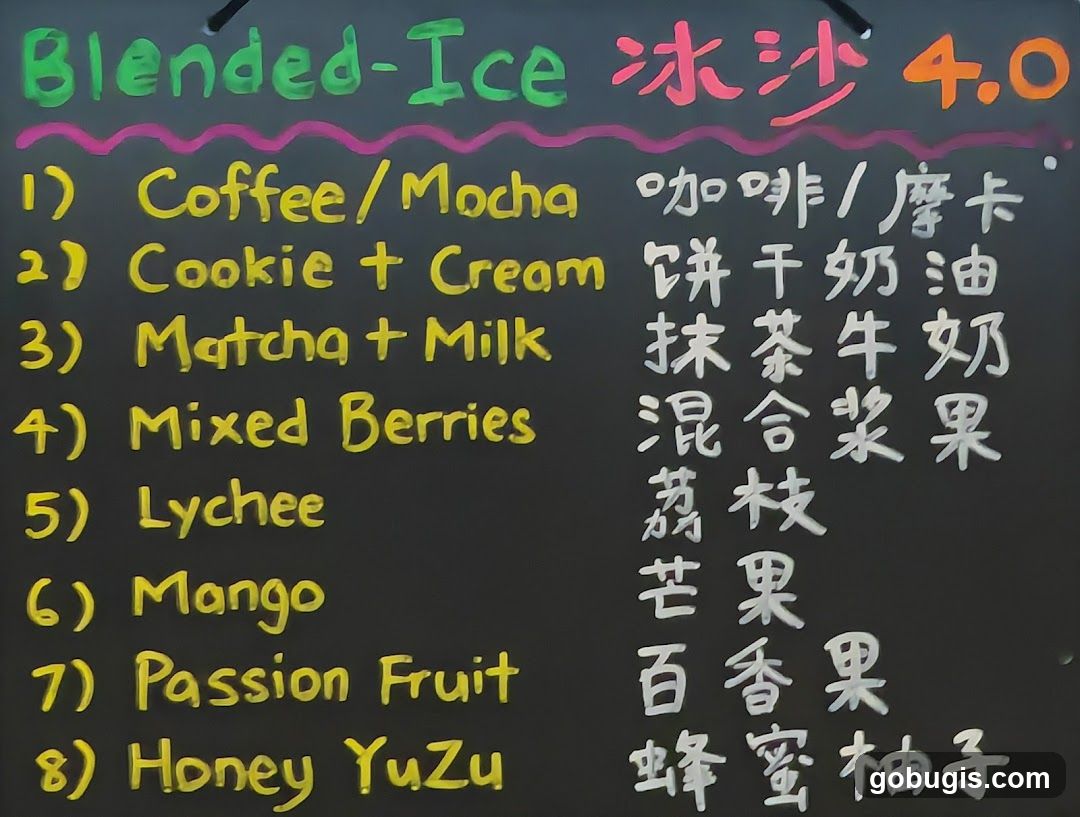 Blended-Ice 冰沙 4.0
1) Coffee/Mocha 咖啡/摩卡
2) Cookie + Cream 饼干奶油
3) Matcha + Milk 抹茶牛奶
4) Mixed Berries 混合浆果
5) Lychee 荔枝
6) Mango 芒果
7) Passion Fruit 百香果
8) Honey YuZu 蜂蜜柚子
gobugis.com